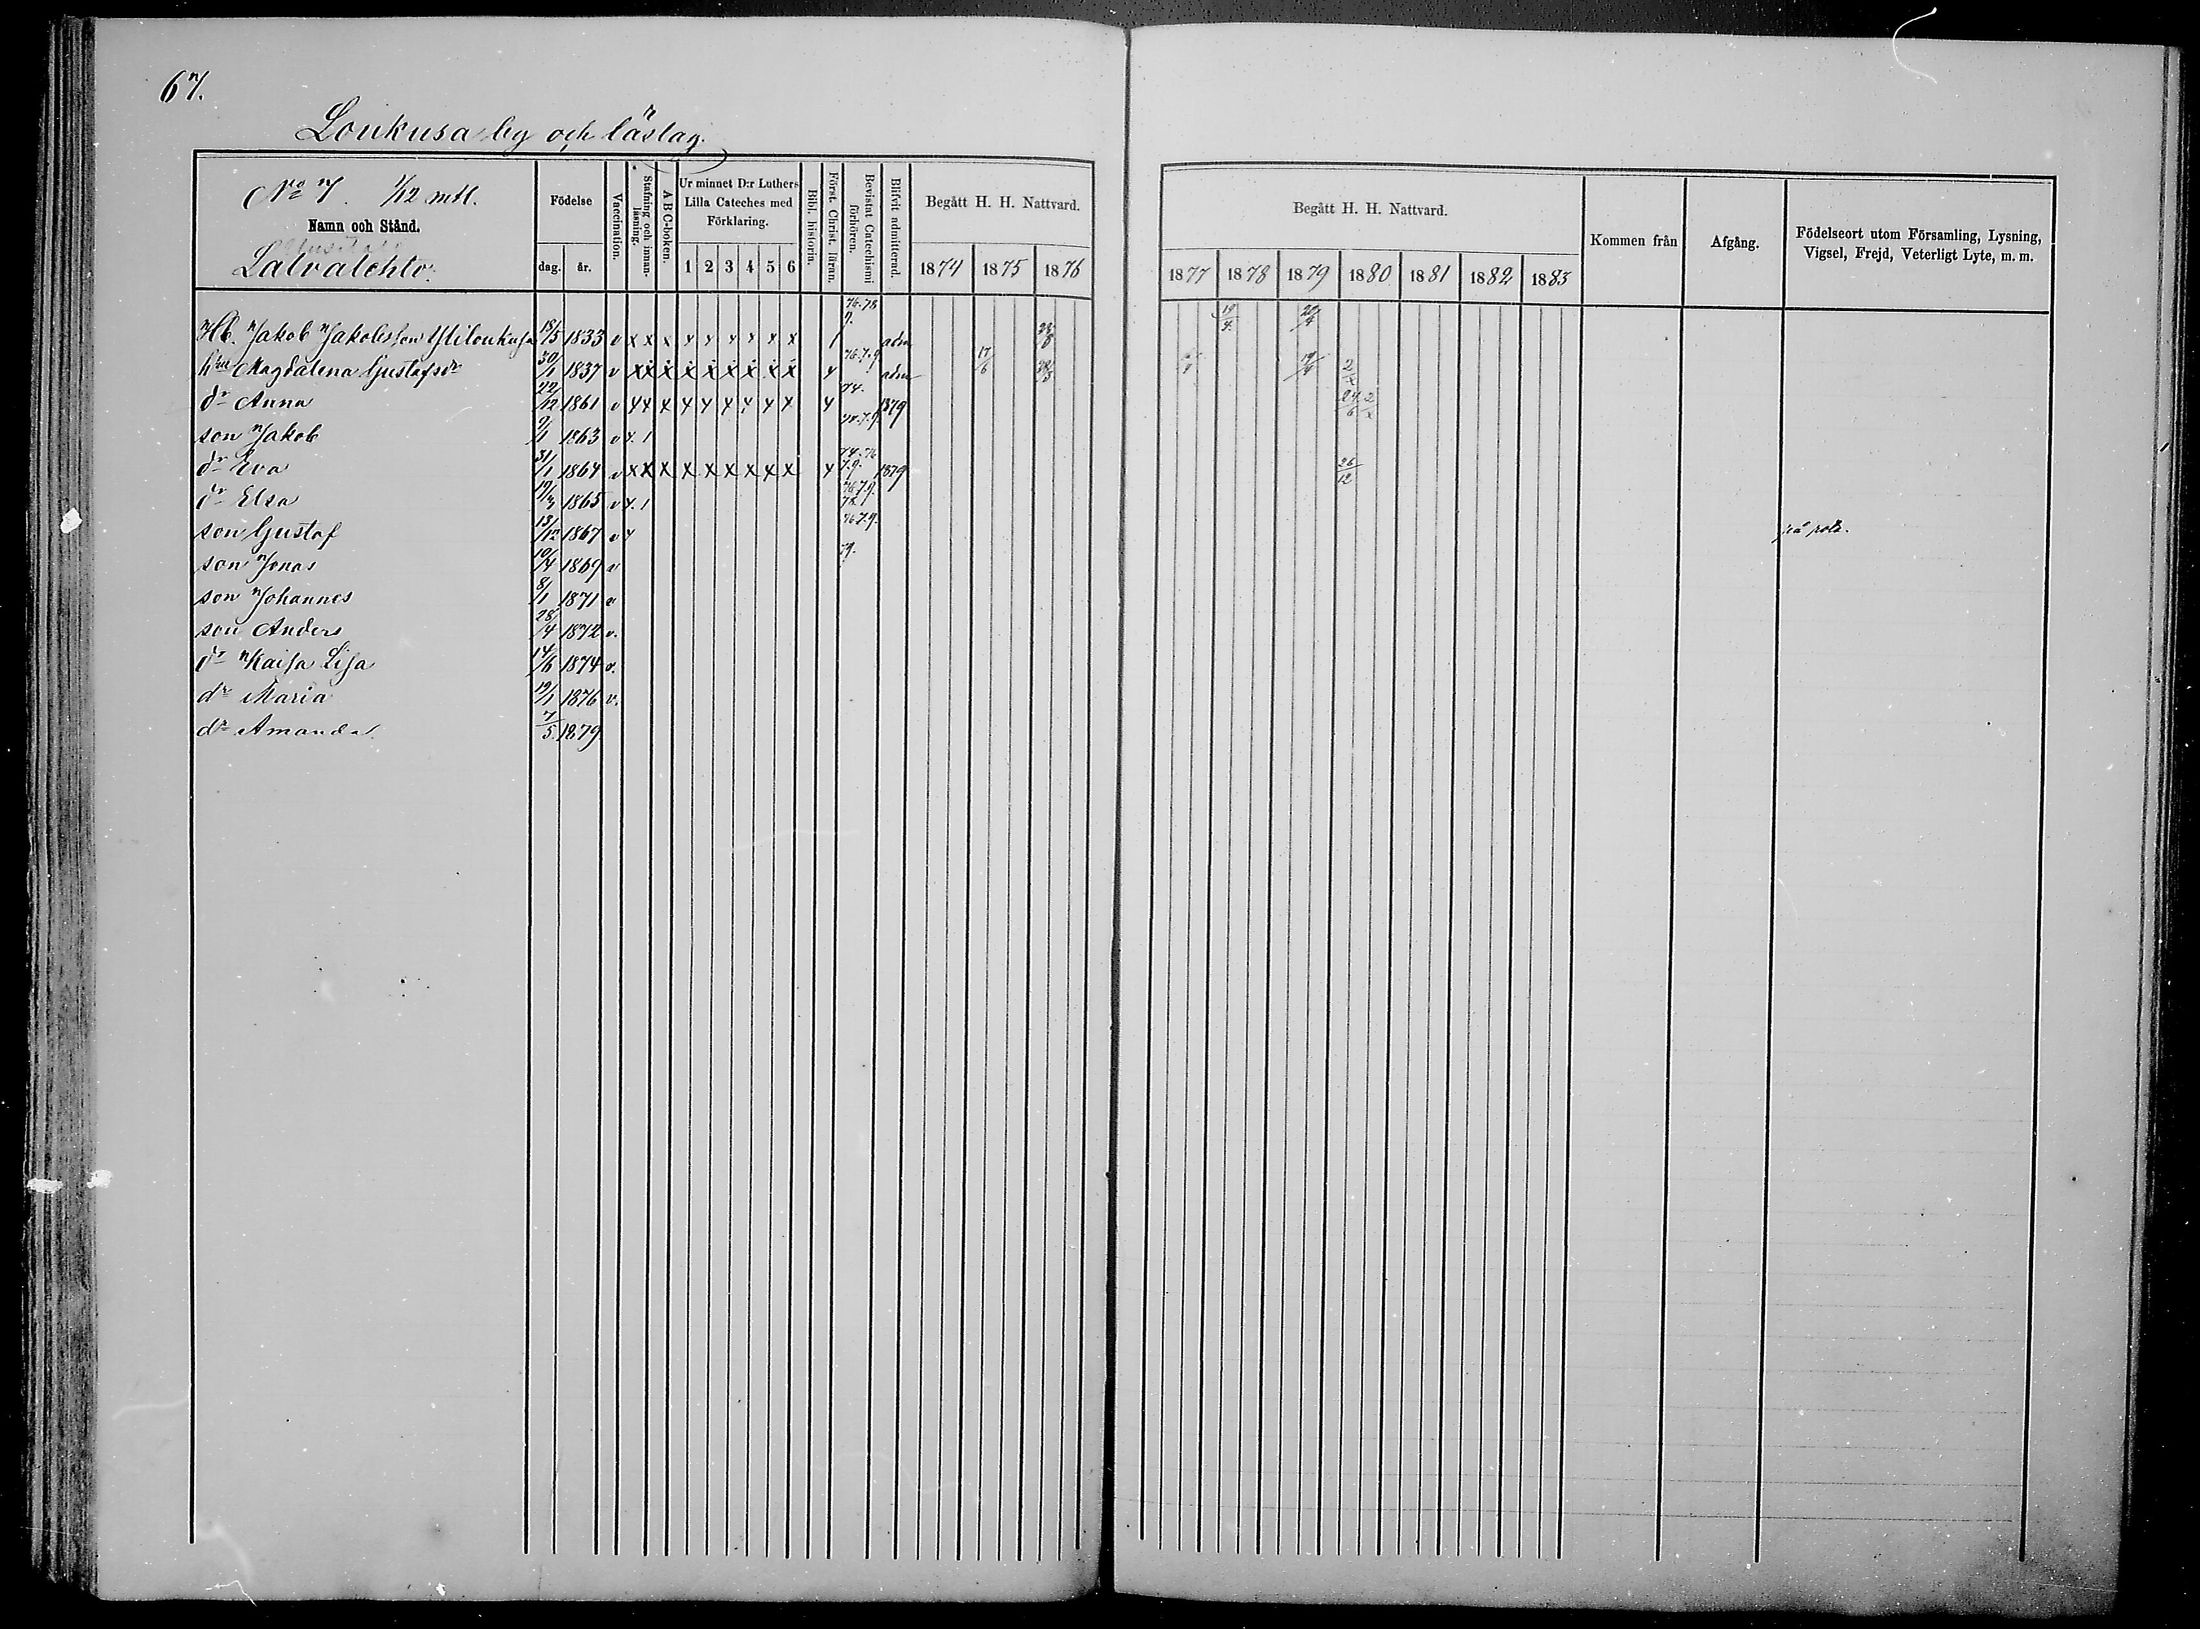 67.
Loukusa by och läslag.
No 7. 1/12 mtl.
Namn och Stånd.
Födelse
dag. år.
Vaccination.
Stafning och innanläsning.
A B C-boken.
Ur minnet D:r Luthers Lilla Cateches med Förklaring.
1 2 3 4 5 6
Bibl. historia.
Först. Christ. läran.
Bevistat Catechismi förhören.
Blifvit admitterad.
Begått H. H. Nattvard.
1874 1875 1876
Begått H. H. Nattvard.
1877 1878 1879 1880 1881 1882 1883
Kommen från
Afgång.
Födelseort utom Församling, Lysning, Vigsel, Frejd, Veterligt Lyte, m. m.
Latvalehto.
Hb. Jakob Jakobsson Yliloukusa 18/5 1833 v x x x x x x x x x 1 adm 19/4
hu Magdalena Gustafsdr 30/1 1837 v x x x x x x x x x 4 76.7.9 adm 17/6
dr Anna 22/12 1861 v 4 74. 1879
son Jakob 9/1 1863 v 4. 1 74.7.9.
dr Eva 31/1 1864 v x x x x x x x x x 4 74.76 7.9. 1879 26/12
dr Elsa 1865 v 4. 1 76.7.9.
son Gustaf 13/12 1867 v 4 76.7.9. på rote.
son Jonas 10/4 1869 v 79.
son Johannes 8/1 1871 v
son Anders 28/4 1872 v.
dr Kaisa Lisa 14/6 1874 v.
dr Maria 19/1 1876 v.
dr Amanda 7/5 1879